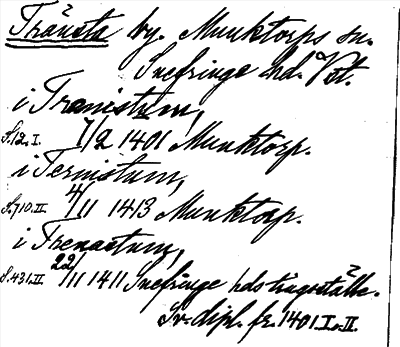 Tränsta by. Munktorps sn.
Snefringe hd. Vst.
i Trenistum,
S.12.I. 7/2 1401 Munktorp.
i Ternistum,
S.710.II. 4/11 1413 Munktorp.
i Trenastum,
S.431.II. 22/11 1411 Snefringe hds tingsställe.
Sv. dipl. fr. 1401.I.o.II.